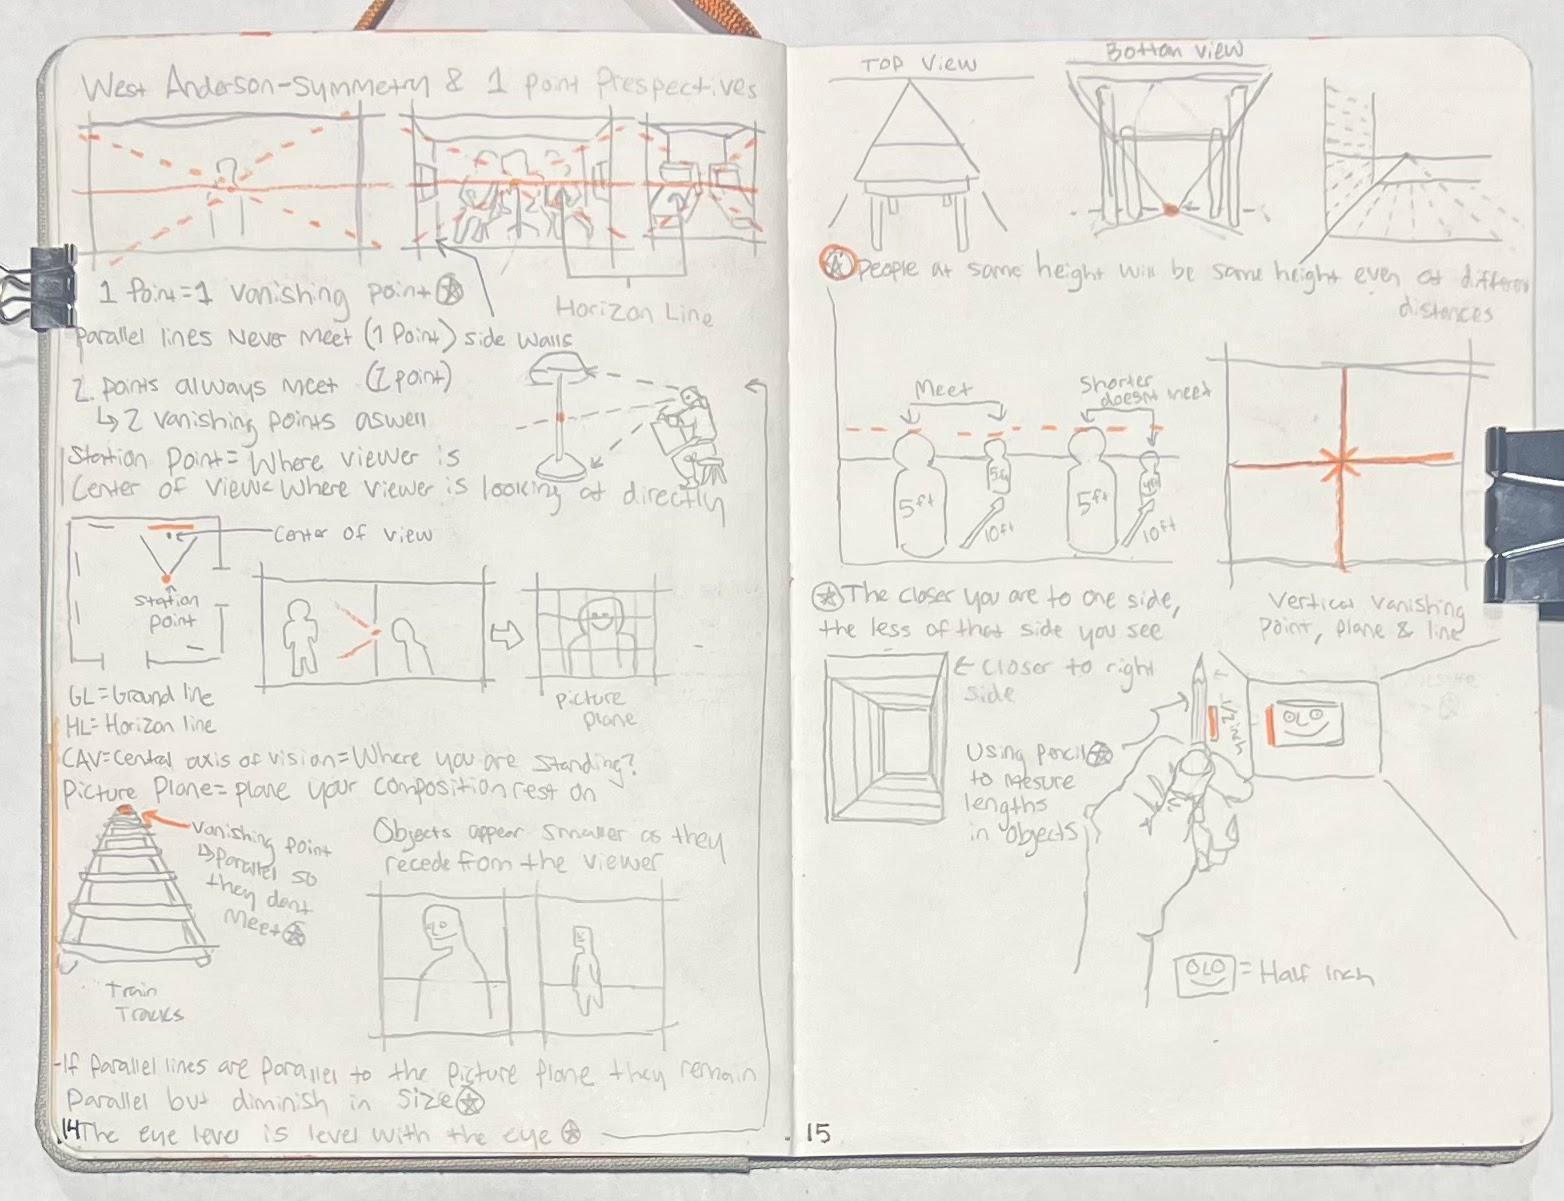 West Anderson-Symmetry & 1 point Prespectives
1 Point=1 Vanishing point
Horizon Line
Parallel lines Never Meet (1 Point) side walls
2 points always meet (2 point)
↳2 vanishing points aswell
Station Point= Where viewer is
Center of View= Where viewer is looking at directly
Center of view
Station
point
GL=Ground line
HL=Horizon line
picture
plane
CAV=Central axis of vision=Where you are standing?
Picture Plane= plane your composition rest on
Vanishing point
↳Parallel so
they dont
Meet
Train
Tracks
Objects appear smaller as they
recede from the viewer
-If Parallel lines are parallel to the picture plane they remain
Parallel but diminish in size
The eye level is level with the eye
14
TOP View
Bottom View
People at same height will be same height even at different
distances
Meet
Shorter
doesnt meet
5ft
10ft
5ft
10ft
Vertical Vanishing
Point, plane & line
The closer you are to one side,
the less of that side you see
← Closer to right
side
Using pencil
to mesure
lengths
in objects
1/2 inch
= Half inch
15